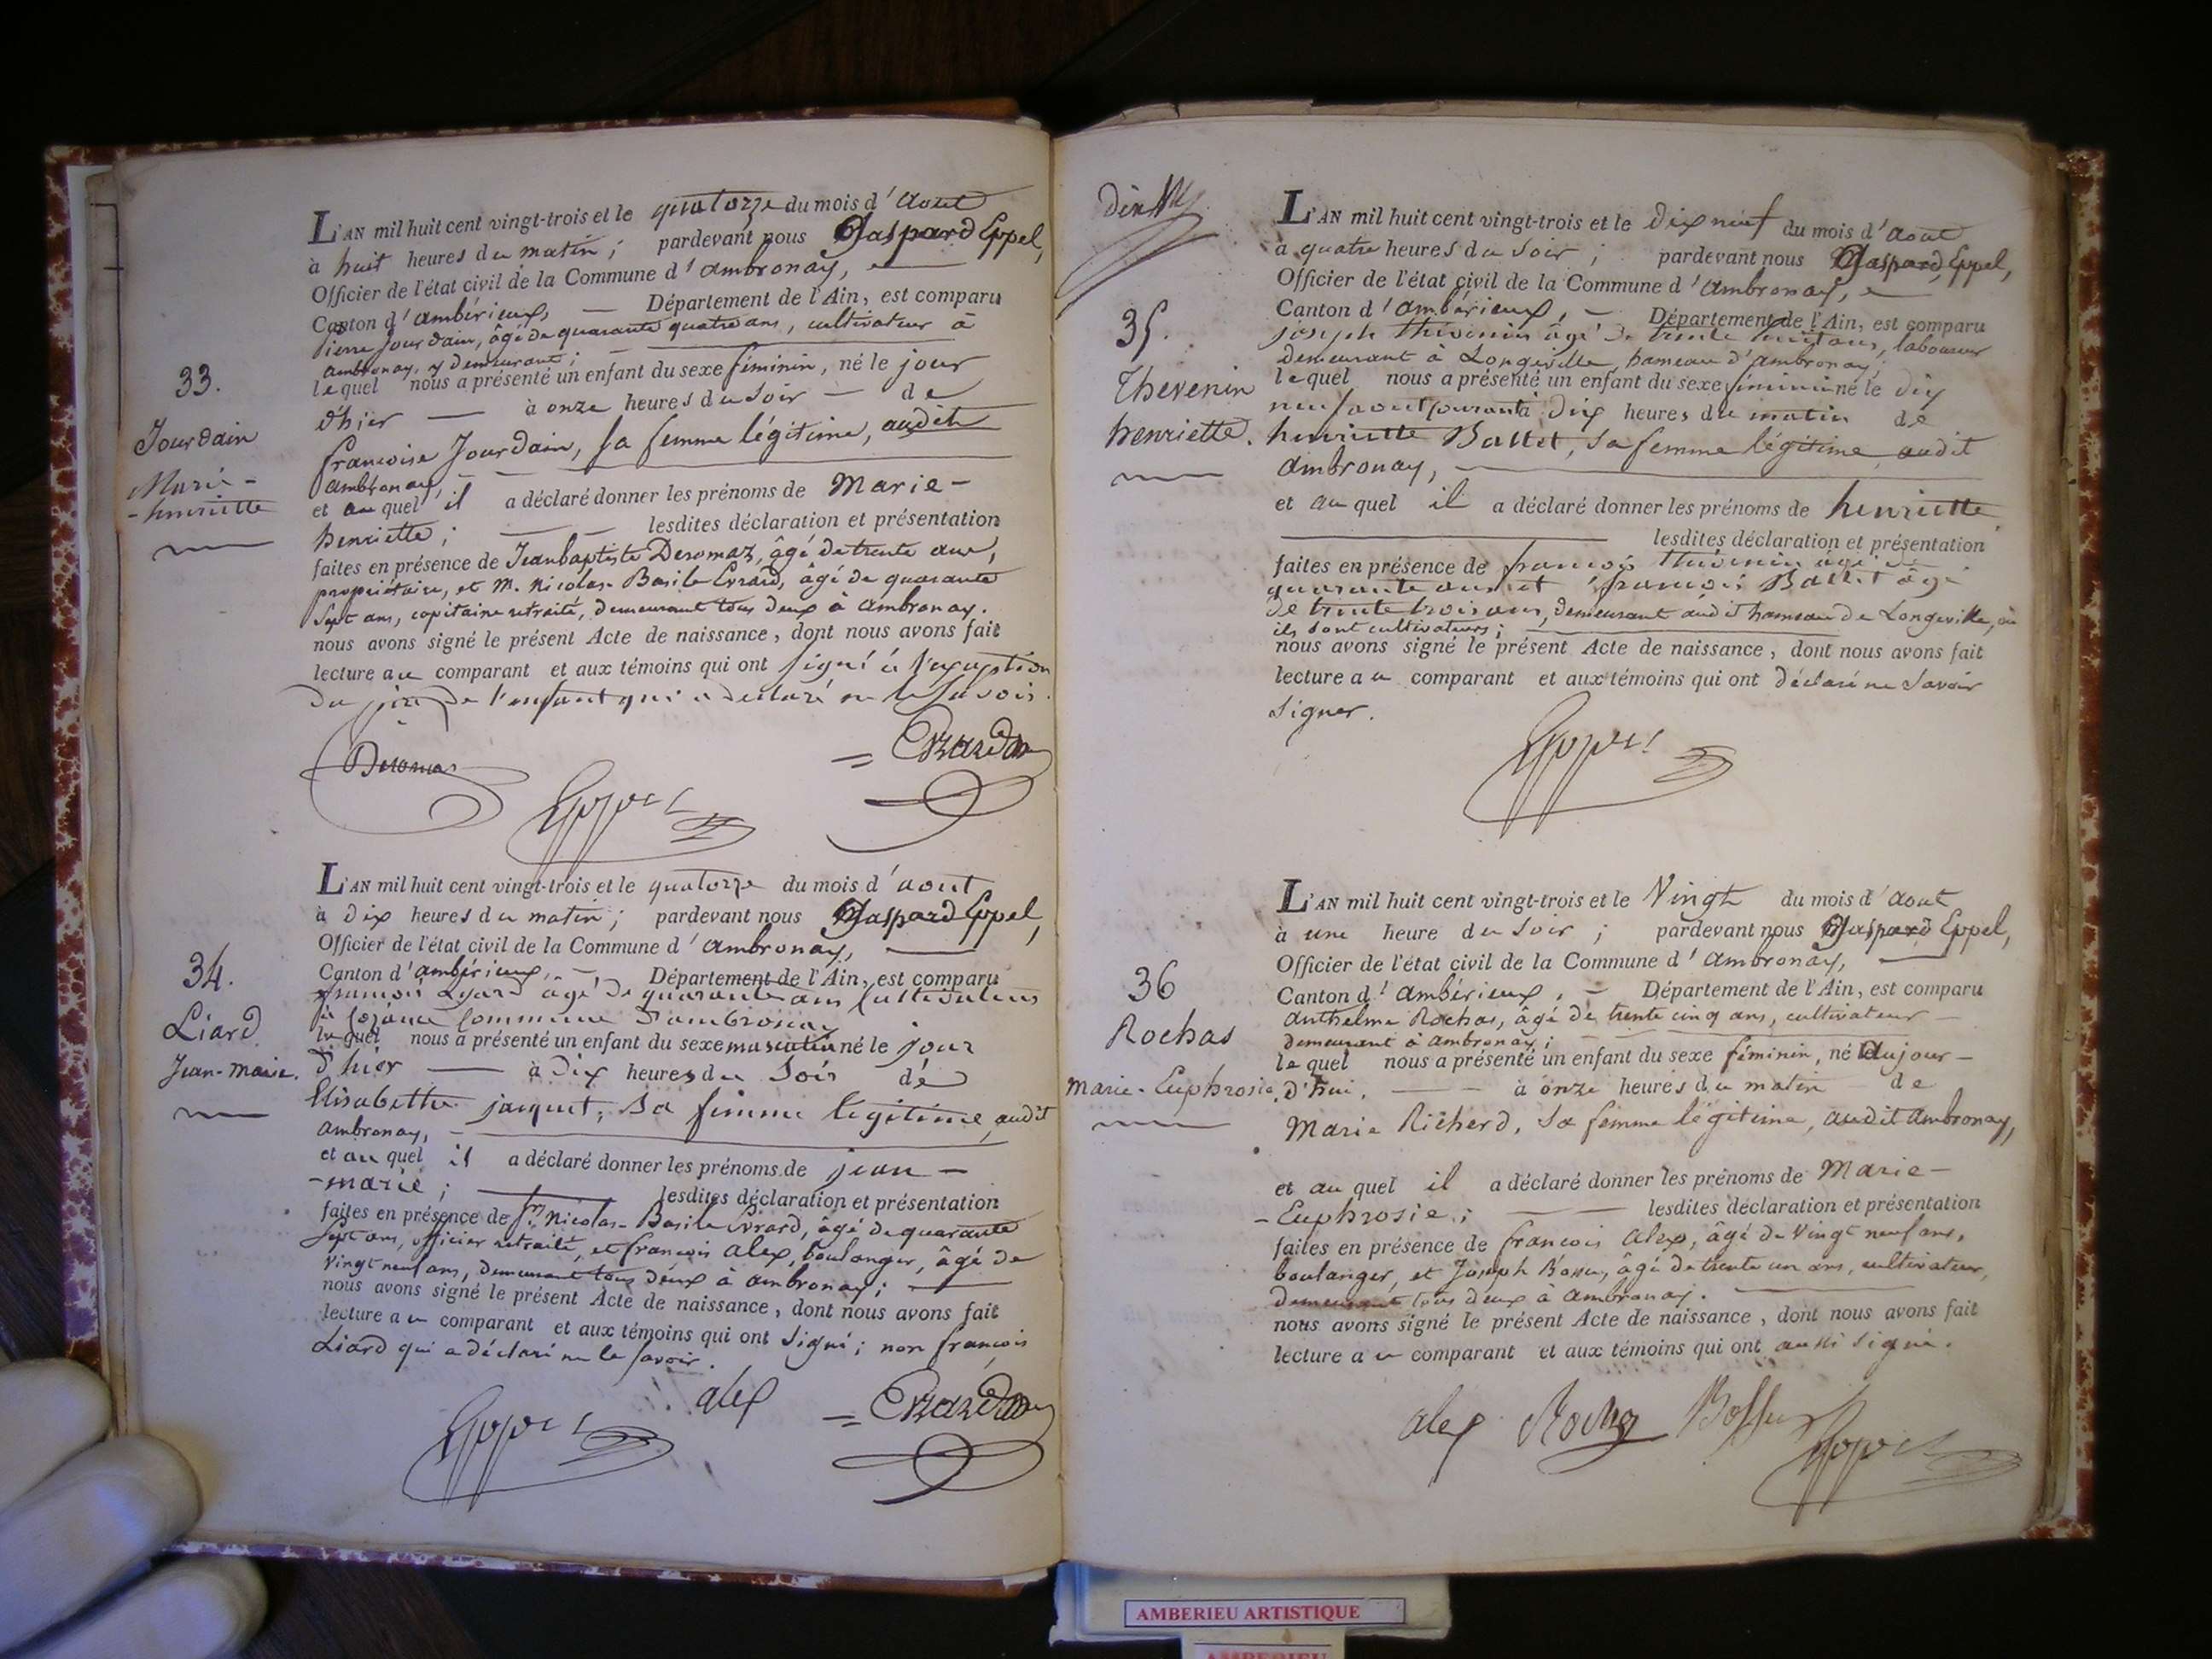 33.
Jourdain
Marie-
-henriette
L'AN mil huit cent vingt-trois et le quatorze du mois d'aout
à huit heures du matin; pardevant nous Gaspard Eppel,
Officier de l'état civil de la Commune d'ambronay,
Canton d'ambérieux, Département de l'Ain, est comparu
Pierre Jourdain, âgé de quarante quatre ans, cultivateur à
ambronay, y demeurant;
lequel nous a présenté un enfant du sexe féminin, né le jour
d'hier à onze heures du soir de
francoise Jourdain, sa femme légitime, audit
ambronay,
et au quel il a déclaré donner les prénoms de Marie-
henriette; lesdites déclaration et présentation
faites en présence de Jean baptiste Deromaz, âgé de trente ans,
propriétaire, et M. Nicolas Basile Evrard, âgé de quarante
sept ans, capitaine retraité, demeurant tous deux à ambronay.
nous avons signé le présent Acte de naissance, dont nous avons fait
lecture au comparant et aux témoins qui ont signé à l'exception
du père de l'enfant qui a déclaré ne le savoir.
Deromas
Evrard
Eppel
34.
Liard
Jean-marie.
L'AN mil huit cent vingt-trois et le quatorze du mois d'aout
à dix heures du matin; pardevant nous Gaspard Eppel,
Officier de l'état civil de la Commune d'ambronay,
Canton d'ambérieux, Département de l'Ain, est comparu
françois Lyard âgé de quarante ans cultivateur
à commune d'ambronay
lequel nous a présenté un enfant du sexe masculin né le jour
d'hier à dix heures du soir de
Elisabeth jaquet, sa femme légitime, audit
ambronay,
et au quel il a déclaré donner les prénoms de jean-
-marie; lesdites déclaration et présentation
faites en présence de Nicolas-Basile Evrard, âgé de quarante
sept ans, officier retraité, et francois alex, boulanger, âgé de
vingt neuf ans, demeurant tous deux à ambronay;
nous avons signé le présent Acte de naissance, dont nous avons fait
lecture au comparant et aux témoins qui ont signé; non francois
Liard qui a déclaré ne le savoir.
alex
Evrard
Eppel
35.
Thevenin
henriette.
L'AN mil huit cent vingt-trois et le dix neuf du mois d'aout
à quatre heures du soir; pardevant nous Gaspard Eppel,
Officier de l'état civil de la Commune d'ambronay,
Canton d'ambérieux, Département de l'Ain, est comparu
joseph thévenin âgé de trente huit ans, laboureur
demeurant à Longeville, hameau d'ambronay,
lequel nous a présenté un enfant du sexe féminin né le dix
neuf aout courant à dix heures du matin de
henriette Ballet, sa femme légitime, audit
ambronay,
et au quel il a déclaré donner les prénoms de henriette
lesdites déclaration et présentation
faites en présence de françois thévenin âgé de
quarante ans et françois Ballet âgé
de trente trois ans, demeurant audit hameau de Longeville, où
ils sont cultivateurs;
nous avons signé le présent Acte de naissance, dont nous avons fait
lecture au comparant et aux témoins qui ont déclaré ne savoir
signer.
Eppel
36
Rochas
Marie-Euphrosie
L'AN mil huit cent vingt-trois et le vingt du mois d'aout
à une heure du soir; pardevant nous Gaspard Eppel,
Officier de l'état civil de la Commune d'ambronay,
Canton d'ambérieux, Département de l'Ain, est comparu
anthelme Rochas, âgé de trente cinq ans, cultivateur
demeurant à ambronay;
lequel nous a présenté un enfant du sexe féminin, né aujour-
d'hui, à onze heures du matin de
Marie Richerd, sa femme légitime, audit ambronay,
et au quel il a déclaré donner les prénoms de Marie-
-Euphrosie; lesdites déclaration et présentation
faites en présence de francois alex, âgé de vingt neuf ans,
boulanger, et Joseph Bossu, âgé de trente un ans, cultivateur,
demeurant tous deux à ambronay.
nous avons signé le présent Acte de naissance, dont nous avons fait
lecture au comparant et aux témoins qui ont aussi signé.
alex Rochas Bossu
Eppel
AMBERIEU ARTISTIQUE
AMBERIEU